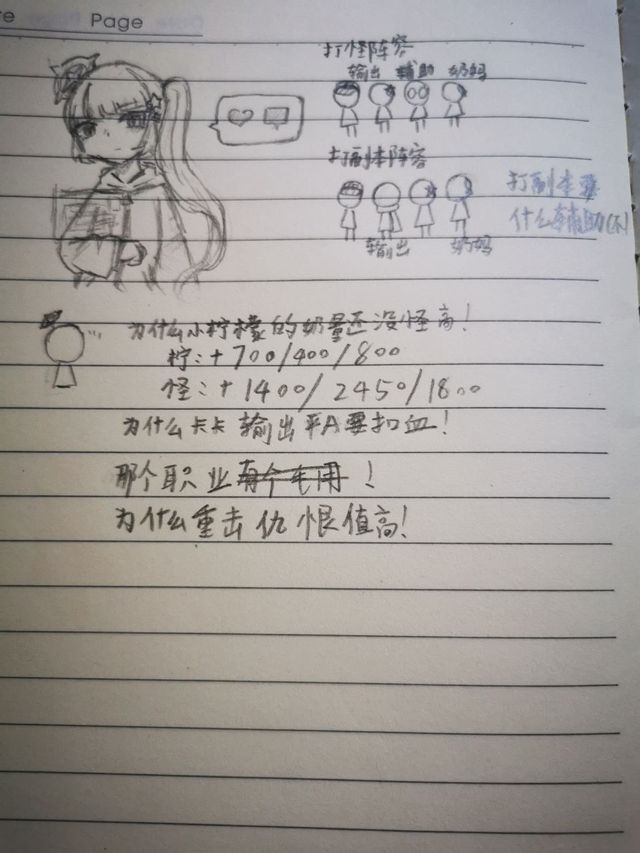 Page
打怪阵容
输出 辅助 奶妈
打副本阵容
输出 奶妈
打副本要
什么辅助
为什么小柠檬的奶量还没怪高!
柠:+700/400/800
怪:+1400/2450/1800
为什么卡卡输出平A要扣血!
那个职业有个毛用!
为什么重击仇恨值高!